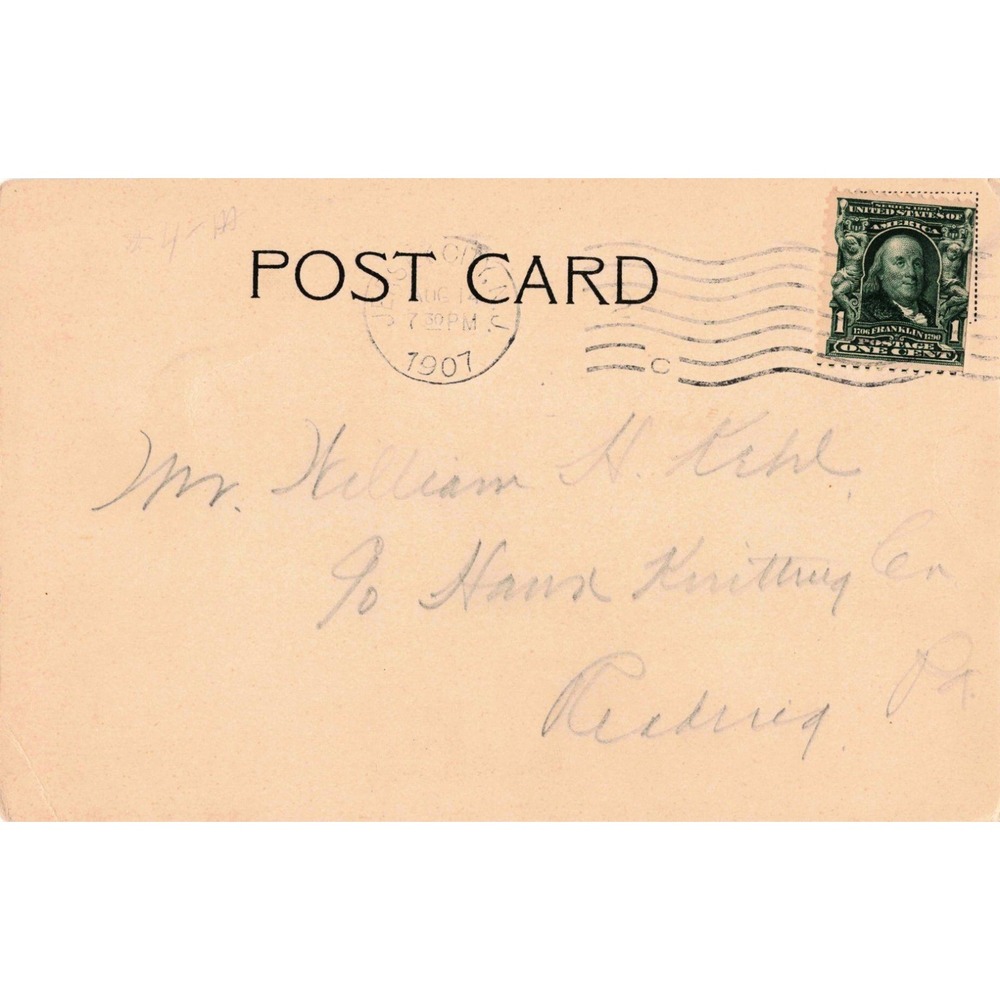 POST CARD
JERSEY CITY, N.J.
AUG 14
7 30 PM
1907
C
SERIES 1902
UNITED STATES OF
AMERICA
1 1706 FRANKLIN 1790 1
POSTAGE
ONE CENT
Mr. William H. Kehl,
c/o Knitting Co
Reading Pa.